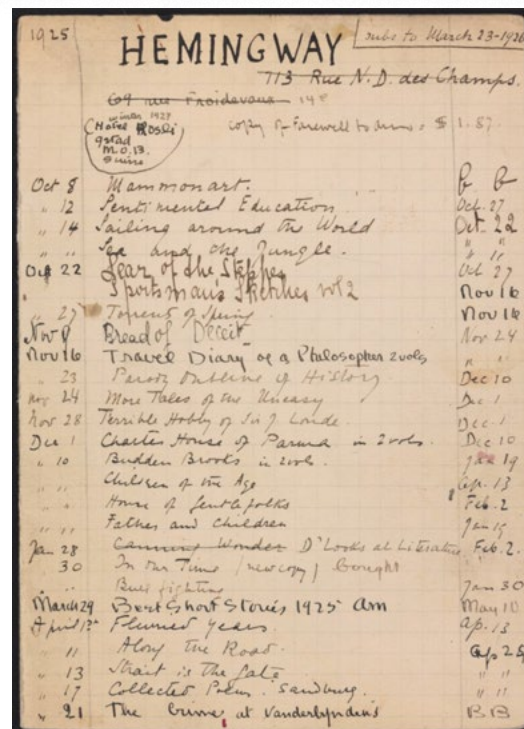 1925 HEMINGWAY subs to March 23-1926
113 Rue N.D. des Champs.
69 rue Froidevaux 14e
winter 1927
Hotel Rossli
gstad
M.O.B.
Suisse
copy of Farewell to arms = $ 1.87.
Oct 8 Mammonart. B B
" 12 Sentimental Education Oct. 27
" 14 Sailing around the World Oct. 22
" " Sea and the Jungle. " "
Oct 22 Lear of the Steppes Oct 27
Sportsman's Sketches vol 2 Nov 16
" 27 Torrents of Spring Nov 16
Nov 9 Bread of Deceit Nov 24
Nov 16 Travel Diary of a Philosopher 2 vols " "
" 23 Parody Outline of History Dec 10
nov 24 More Tales of the Uneasy Dec 1
Nov 28 Terrible Hobby of Sir J Londe. Dec 1
Dec 1 Charter House of Parma in 2 vols. Dec 10
" 10 Budden Brooks in 2 vols. Jan 19
" " Children of the Age Ap. 13
" " House of Gentlefolks Feb. 2
" " Fathers and Children Jan 19
Jan 28 Canning Wonder D'Looks at Literature Feb. 2.
30 In our Time (new copy) bought
" Bull fighting Jan 30
March 29 Best Short Stories 1925 Am May 10
April 12 Plumed years. ap. 13
" 11 Along the Road. ap 25
" 13 Strait is the Gate " "
" 17 Collected Poems. Sandburg. " "
" 21 The Crime at Vanderlynden's B B